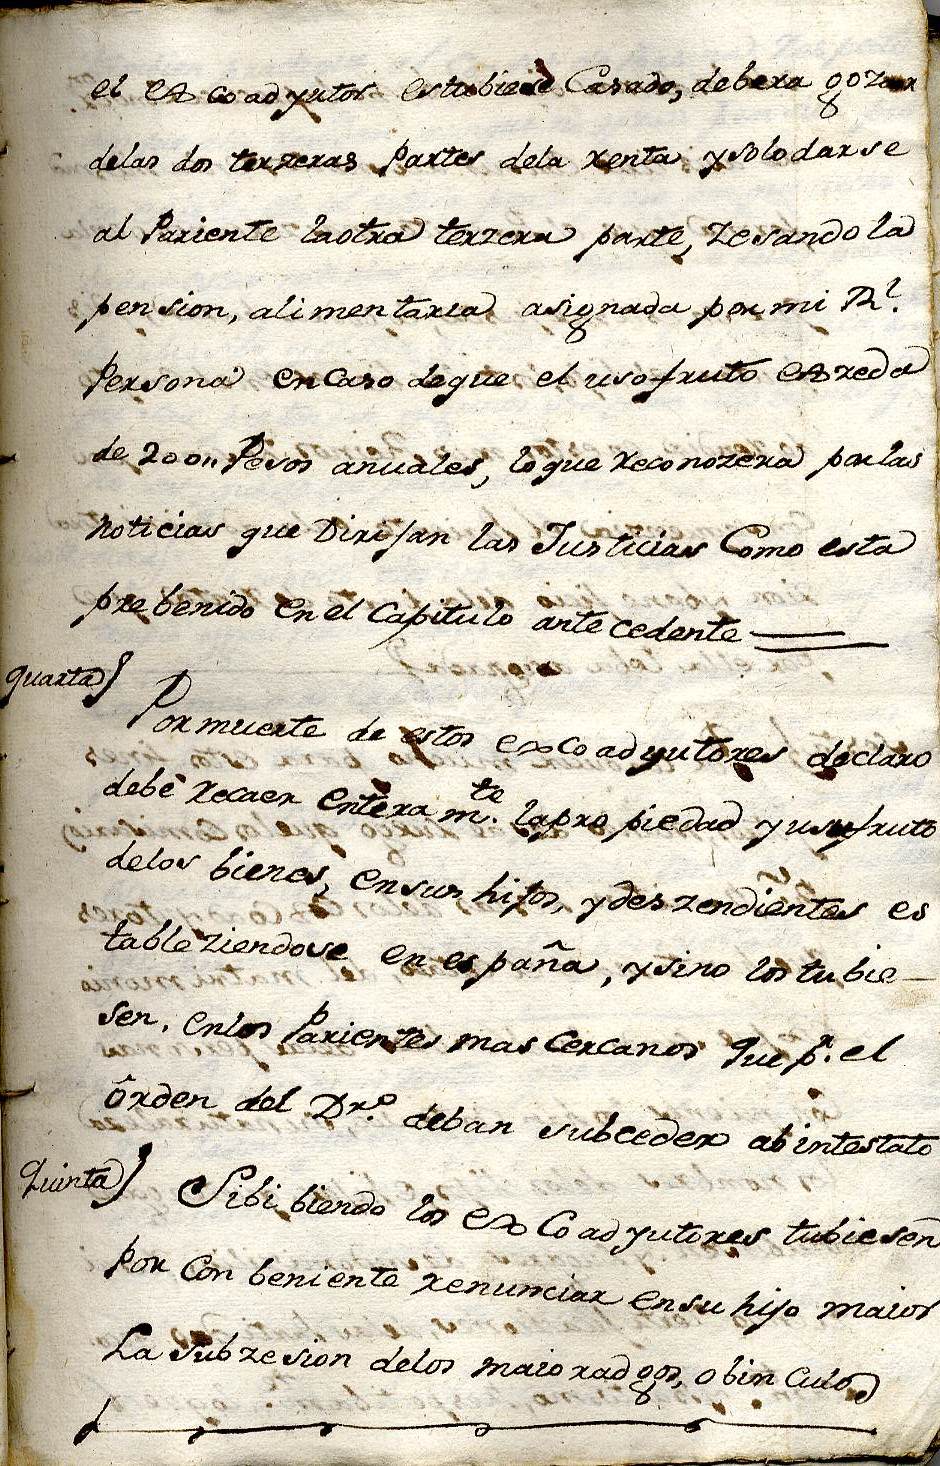 el ex coadyutor estubiese Casado, debera gozar
delas dos terzeras partes dela renta y solo darse
al Pariente la otra terzera parte, zesando la
pension, alimentaria asignada por mi Rl.
Persona en caso de que el uso fruto exzeda
de 200,, Pesos anuales, lo que reconozera por las
noticias que Dirijan las Justicias Como esta
prebenido en el Capitulo antecedente
quarta) Por muerte de estos ex coadyutores declaro
debe recaer entera mte. la propiedad y usufruto
delos bienes, en sus hijos, y deszendientes es
tableziendose en españa, y sino los tubie-
sen, en los Parientes mas cercanos que pr. el
orden del Dro. deban subceder abintestato
Quinta) Si bibiendo los ex Coadyutores tubiesen
por combeniente renunciar en su hijo maior
La subzesion delos maioradgos, o binculos